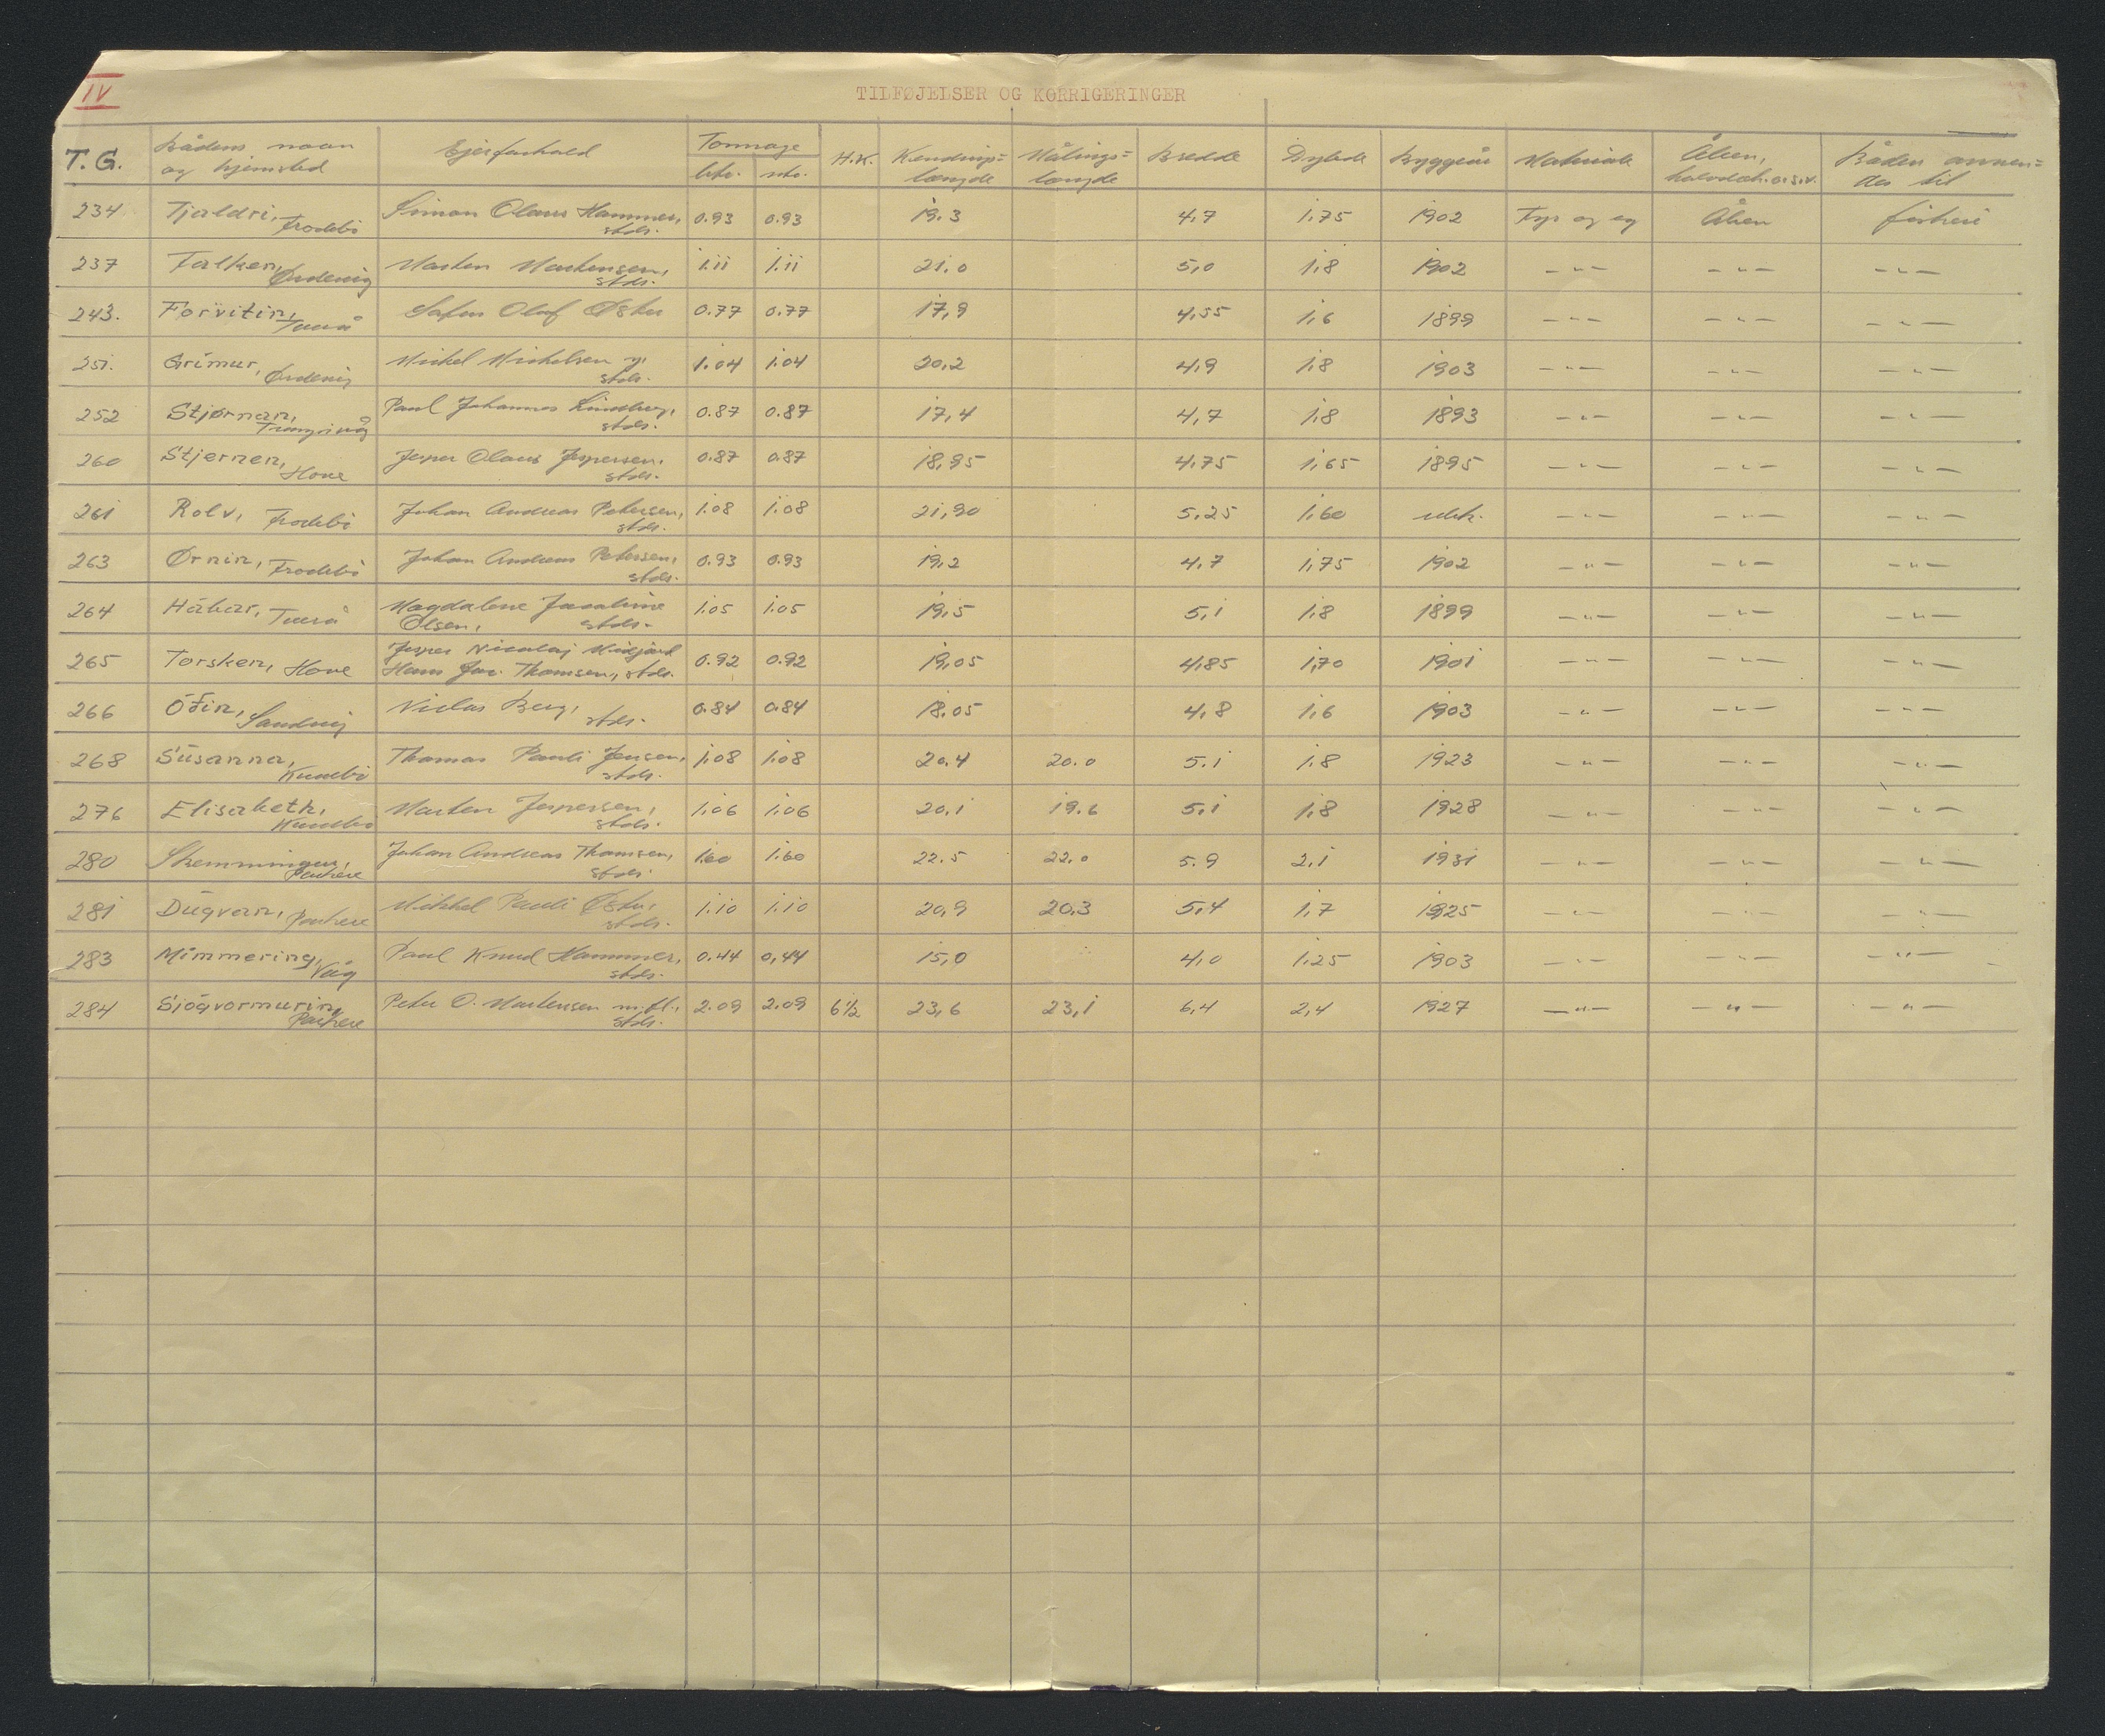 IV
TILFØJELSER OG KORRIGERINGER
T.G. Bådens navn og hjemsted Ejerforhold Tonnage brto. nto. H.K. Kendnings= længde Målings= længde Bredde Dybde Byggeår Materiale Åben, halvdæk. o.s.v. Båden anven= des til
234 Tjaldri, Frodebö Simon Olaus Hammer, stds. 0.93 0.93 19.3 4,7 1,75 1902 Fyr og eg Åben fiskeri
237 Falken, Ördevig Morten Mortensen, stds. 1.11 1.11 21.0 5,0 1,8 1902 -"- -"- -"-
243. Forvitin, Tverå Olaf Öster 0.77 0.77 17,9 4,55 1,6 1899 -"- -"- -"-
251. Grimur, Ördevig Mickel Michelsen stds. 1.04 1.04 20,2 4,9 1,8 1903 -"- -"- -"-
252 Stjørnan, Trangisvåg Paul Johannes Lindberg, stds. 0.87 0.87 17,4 4,7 1,8 1893 -"- -"- -"-
260 Stjernen, Hove Jesper Olaus Jespersen, stds. 0.87 0.87 18,95 4,75 1,65 1895 -"- -"- -"-
261 Rolv, Frodebö Johan Andreas Petersen, stds. 1.08 1.08 21,90 5,25 1,60 ubek. -"- -"- -"-
263 Ørnin, Frodebö Johan Andreas Petersen, stds. 0.93 0.93 19,2 4,7 1,75 1902 -"- -"- -"-
264 Håkar, Tverå Magdalene Olsen, stds. 1.05 1.05 19,5 5,1 1,8 1899 -"- -"- -"-
265 Torsken, Hove Jesper Nicolaj Midjord Hans Jac. Thomsen, stds. 0.92 0.92 19,05 4,85 1,70 1901 -"- -"- -"-
266 Óðin, Sandvig Niclas Berg, stds. 0.84 0.84 18,05 4,8 1,6 1903 -"- -"- -"-
268 Súsanna, Kvalbö Thomas Pauli Jensen, stds. 1,08 1.08 20.4 20.0 5.1 1,8 1923 -"- -"- -"-
276 Elisabeth, Kvalbö Morten Jespersen, stds. 1,06 1,06 20,1 19.6 5,1 1,8 1928 -"- -"- -"-
280 Skemmingur, Porkere Johan Andreas Thomsen, stds. 1.60 1.60 22.5 22.0 5.9 2,1 1931 -"- -"- -"-
281 Dúgvan, Porkere Mikkel Pauli Öster, stds. 1.10 1.10 20,9 20,3 5,4 1,7 1925 -"- -"- -"-
283 Mimmering, Våg Paul Knud Hammer, stds. 0.44 0,44 15,0 4,0 1,25 1903 -"- -"- -"-
284 Sjógvormurin, Porkere Peter O. Mortensen m.fl., stds. 2.09 2.09 6½ 23,6 23,1 6,4 2,4 1927 -"- -"- -"-